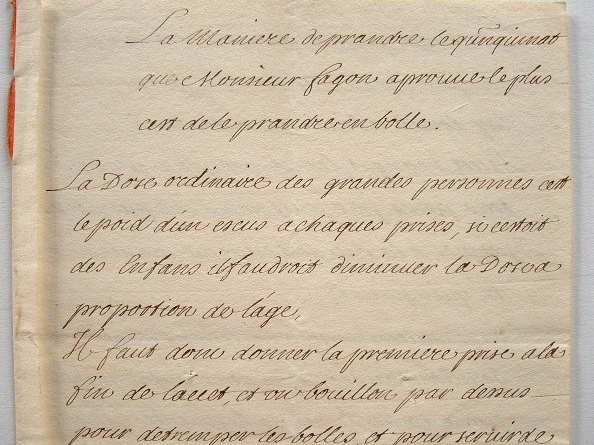 La Maniere de prandre le quinquinat
que Monsieur fagon aprouue le plus
cest de le prandre en bolle.
La Dose ordinaire des grandes personnes cest
le poid d'un escus a chaques prises, si cestoit
des Enfans il faudroit diminuer la Dose a
proportion de l'age,
Il faut donc donner la premiere prise a la
fin de l'accet, et un bouillon par dessus
pour detremper les bolles, et pour seruir de